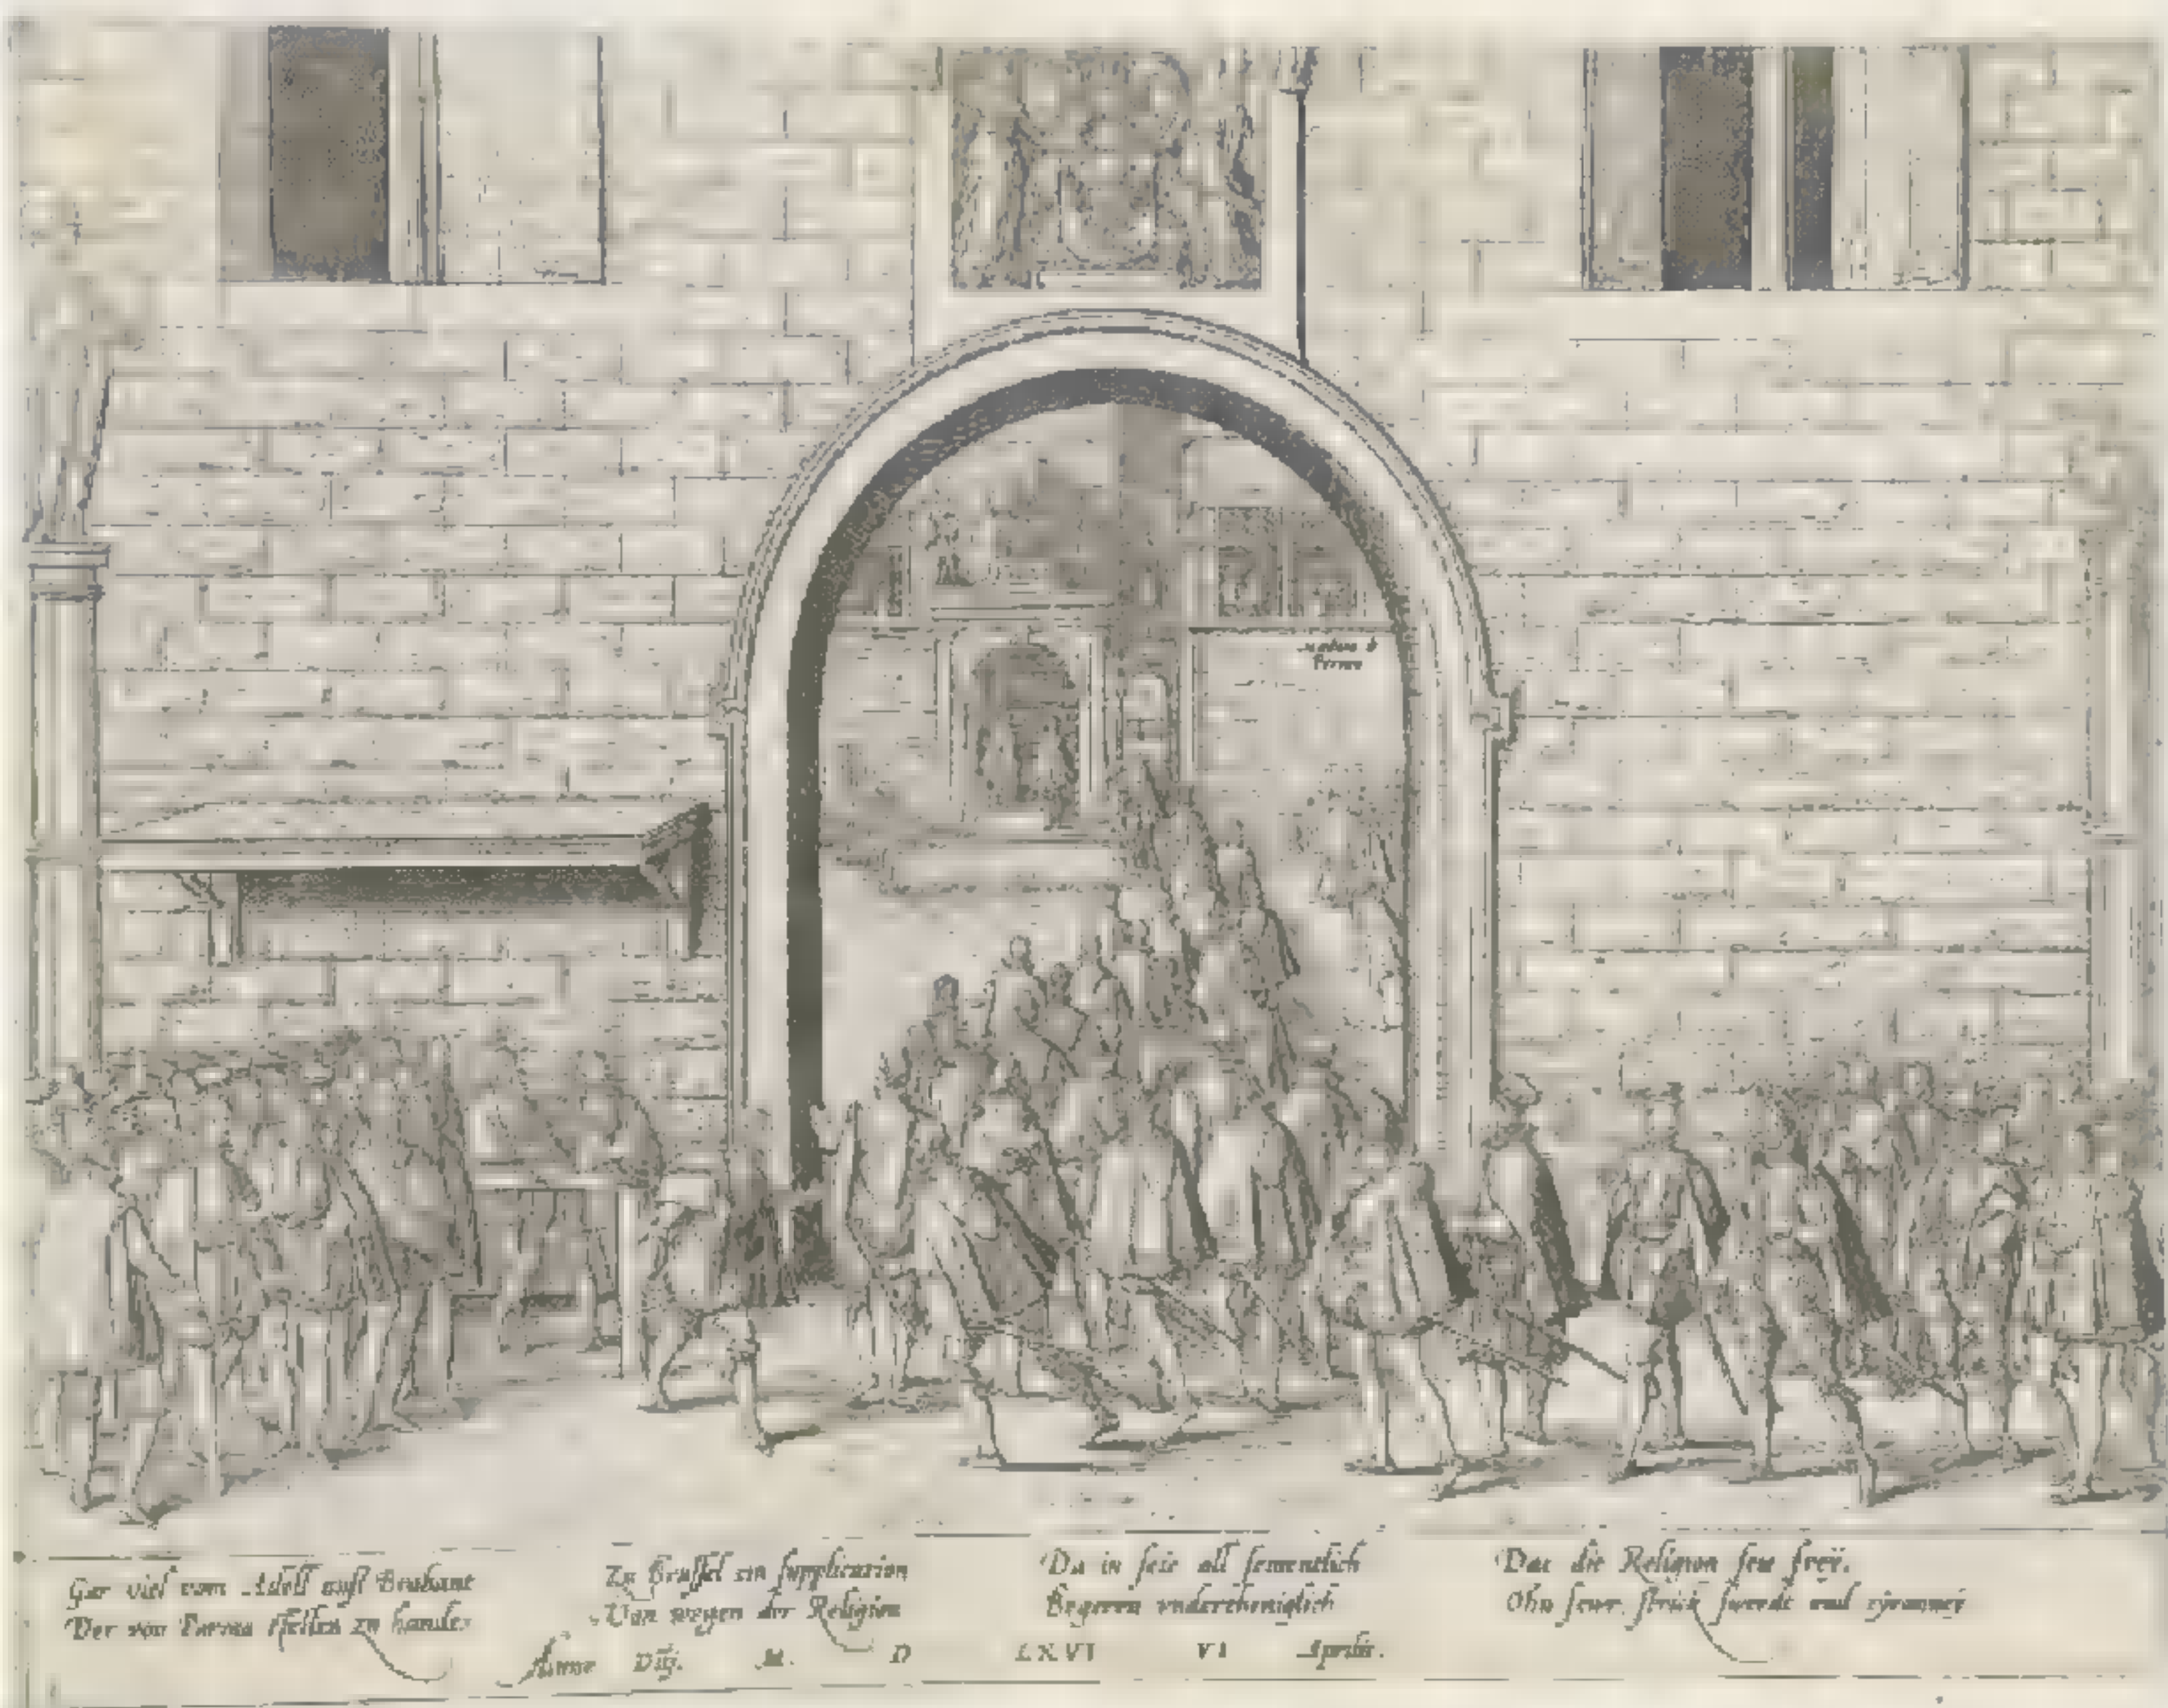 Madam d
Parma
Gar viel vom Adell auß Brabant
Der von Parma stellen zu handt
Zu Brüssel ein supplication
Von wegen der Religion
Da in seie all sementlich
Begeren undertheniglich
Das die Religion seu freÿ.
Ohn feur, strick swerdt und tÿranneÿ
Anno Dnj. M. D LXVI VI Aprilis.